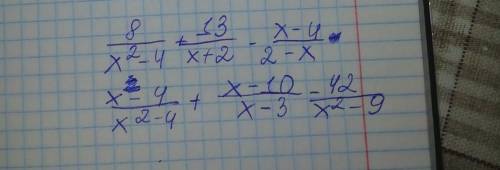 8/(x²-4) + 13/(x+2) - (x-4)/(2-x)
(x-4)/(x²-4) + (x-10)/(x-3) - 42/(x²-9)